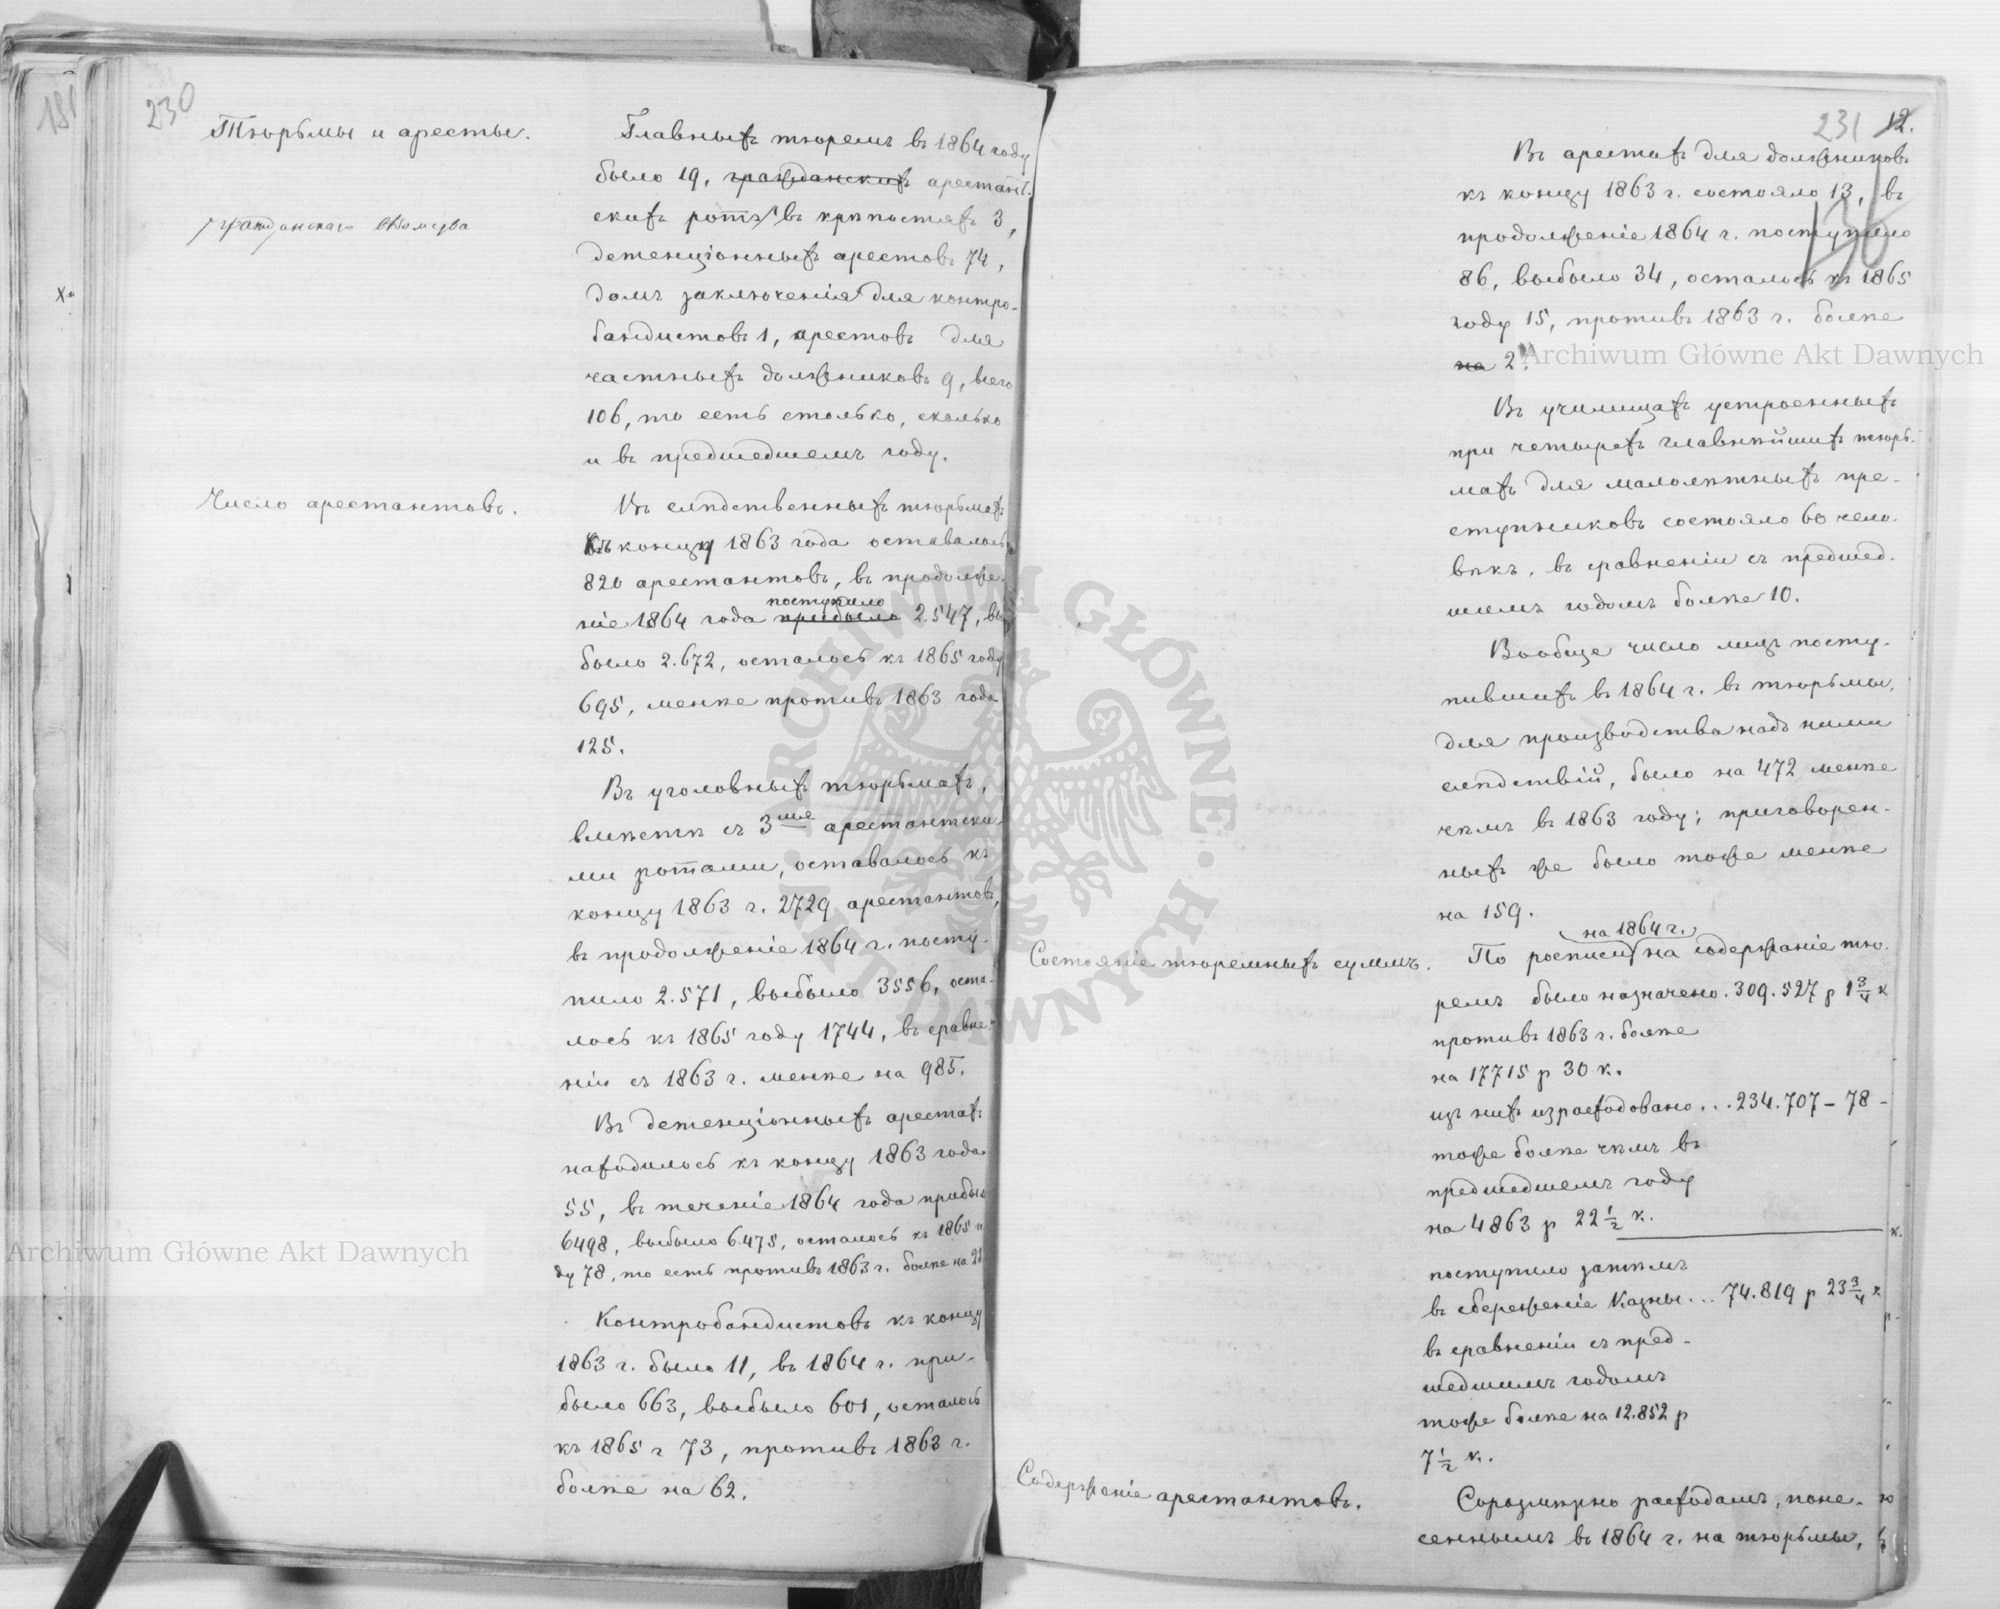 181
230
Тюрьмы и аресты.
гражданскаго вѣдомства
Главныхъ тюремъ въ 1864 году
было 19, гражданскихъ арестант-
скихъ ротъ въ крѣпостяхъ 3,
детенціонныхъ арестовъ 74,
домъ заключенія для контро-
бандистовъ 1, арестовъ для
частныхъ должниковъ 9, всего
106, то есть столько, сколько
и въ предшедшемъ году.
Число арестантовъ.
Въ слѣдственныхъ тюрьмахъ
къ концу 1863 года оставалось
820 арестантовъ, въ продолже-
поступило
ніе 1864 года прибыло 2.547, вы
было 2.672, осталось къ 1865 году
695, менѣе противъ 1863 года
125.
Въ уголовныхъ тюрьмахъ,
вмѣстѣ съ 3мя арестантски
ми ротами, оставалось къ
концу 1863 г. 2729 арестантовъ,
въ продолженіе 1864 г. посту-
пило 2.571, выбыло 3556, оста-
лось къ 1865 году 1744, въ сравне-
ніи съ 1863 г. менѣе на 985.
Въ детенціонныхъ арестахъ
находилось къ концу 1863 года
55, въ теченіе 1864 года прибыло
6498, выбыло 6.475, осталось къ 1865 го
ду 78, то есть противъ 1863 г. болѣе на 23
Контробандистовъ къ концу
1863 г. было 11, въ 1864 г. при-
было 663, выбыло 601, осталось
къ 1865 г 73, противъ 1863 г.
болѣе на 62.
231 12.
136
Въ арестахъ для должниковъ
къ концу 1863 г. состояло 13, въ
продолженіе 1864 г. поступило
86, выбыло 34, осталось къ 1865
году 15, противъ 1863 г. болѣе
на 2.
Въ училищахъ устроенныхъ
при четырехъ главнѣйшихъ тюрь-
махъ для малолѣтныхъ пре-
ступниковъ состояло 60 чело-
вѣкъ, въ сравненіи съ предшед-
шимъ годомъ болѣе 10.
Вообще число лицъ посту-
пившихъ въ 1864 г. въ тюрьмы,
для производства надъ ними
слѣдствій, было на 472 менѣе
чѣмъ въ 1863 году; приговорен-
ныхъ же было тоже менѣе
на 159.
Состояніе тюремныхъ суммъ.
на 1864 г.
По росписи на содержаніе тю-
ремъ было назначено. 309.527 р 1 3/4 к
противъ 1863 г. болѣе
на 17715 р 30 к.
изъ нихъ израсходовано... 234.707 – 78 -
тоже болѣе чѣмъ въ
предшедшемъ году
на 4863 р 22 1/2 к.
поступило затѣмъ
въ сбереженіе Казны... 74.819 р 23 3/4 к
въ сравненіи съ пред-
шедшимъ годомъ
тоже болѣе на 12.852 р
7 1/2 к.
Содержаніе арестантовъ.
Соразмѣрно расходамъ, поне-
сеннымъ въ 1864 г. на тюрьмы,
Archiwum Główne Akt Dawnych
Archiwum Główne Akt Dawnych
ARCHIWUM GŁÓWNE AKT DAWNYCH